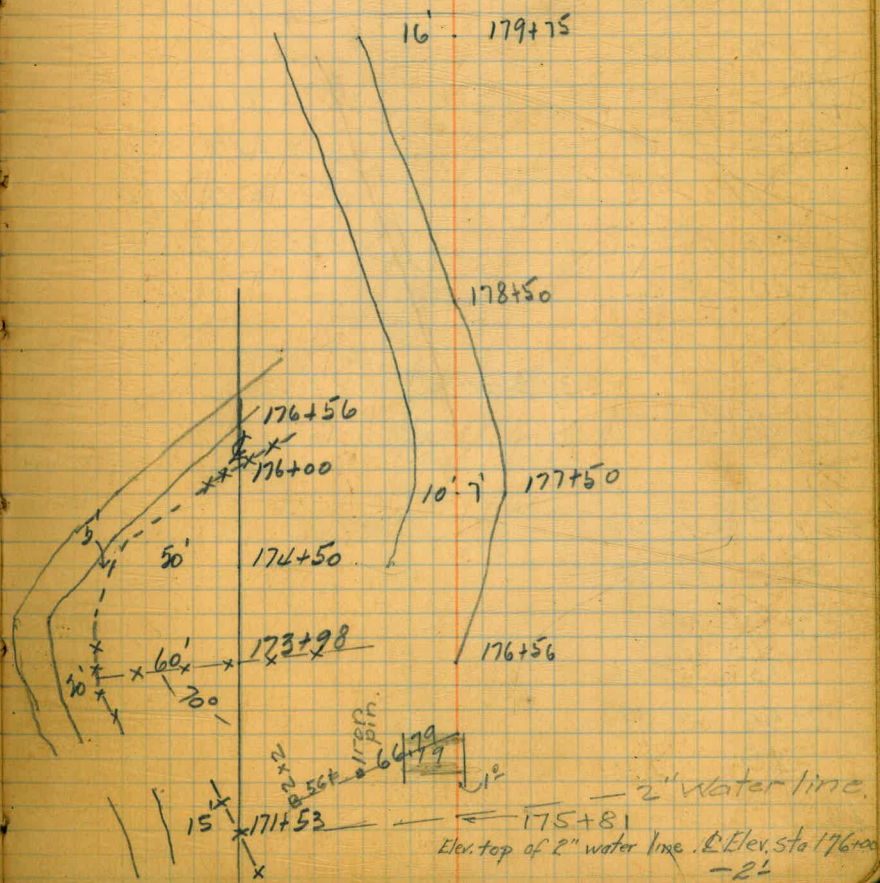 16' 179+75
178+50
176+56
176+00
10' 7' 177+50
5'
50' 174+50
60' 173+98
176+56
20'
70°
2x2
56+
pin
66+79
79
1°
2" Water line
15' 171+53
175+81
Elev. top of 2" water line. ℄ Elev. Sta 176+00
-2'